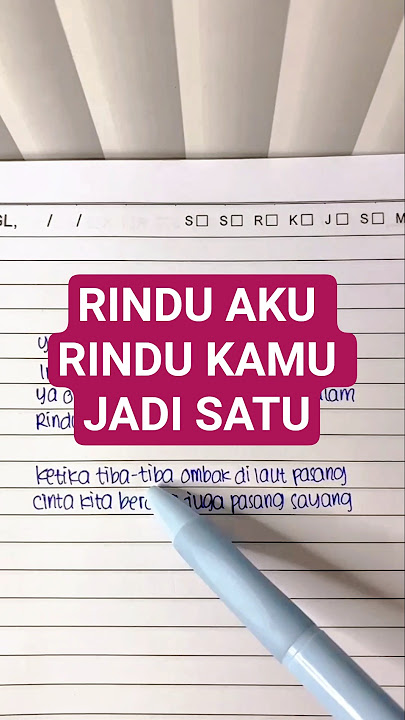 GL, / / S□ S□ R□ K□ J□ S□ M
RINDU AKU
RINDU KAMU
JADI SATU
ya
lam
Rindu
ketika tiba-tiba ombak di laut pasang
cinta kita juga pasang sayang